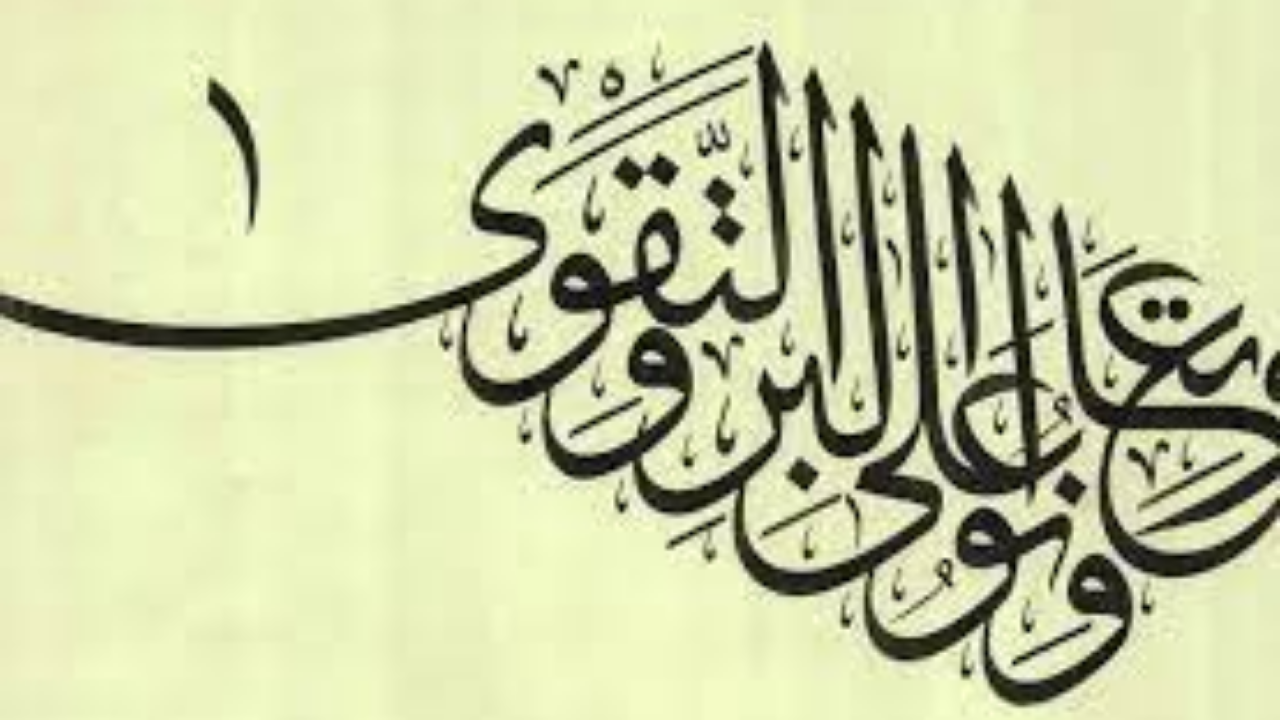 وَتَعَاوَنُوا عَلَى الْبِرِّ وَالتَّقْوَى